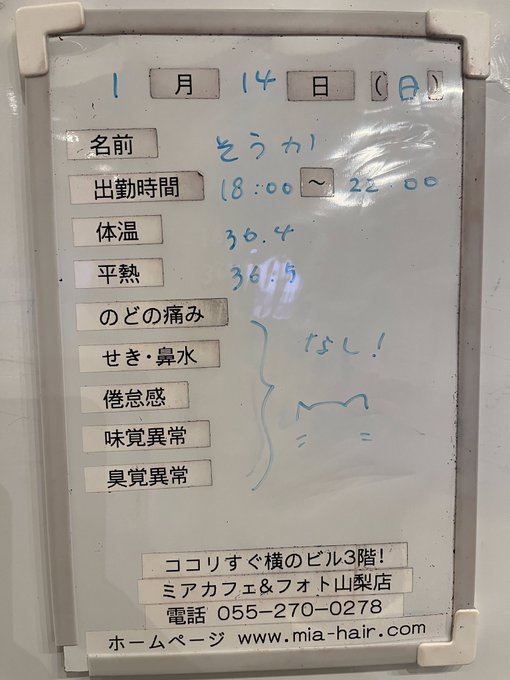 1月14日(日)
名前 そうか
出勤時間 18:00〜22:00
体温 36.4
平熱 36.5
のどの痛み
せき・鼻水
なし!
倦怠感
味覚異常
臭覚異常
ココリすぐ横のビル3階!
ミアカフェ&フォト山梨店
電話 055-270-0278
ホームページ www.mia-hair.com